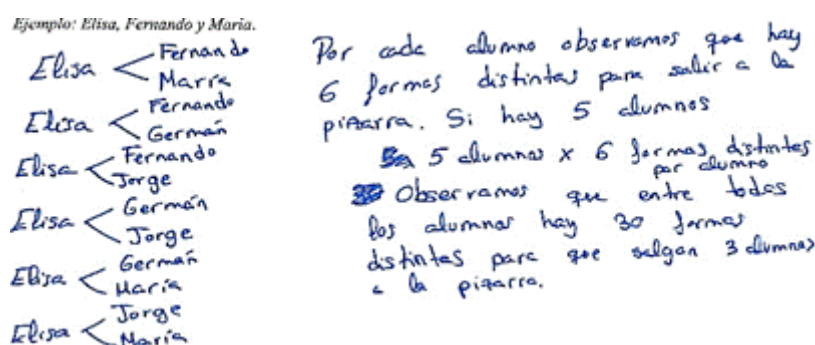 Ejemplo: Elisa, Fernando y María.
Elisa < Fernando
Marra
Elisa < Fernando
Germán
Elisa < Fernando
Jorge
Elisa < Germán
Jorge
Elisa < Germán
María
Elisa < Jorge
María
Por cada alumno observamos que hay
6 formas distintas para salir a la
pizarra. Si hay 5 alumnos
5 alumnos x 6 formas distintas
por alumno
Observamos que entre todos
los alumnos hay 30 formas
distintas para que salgan 3 alumnos
a la pizarra.